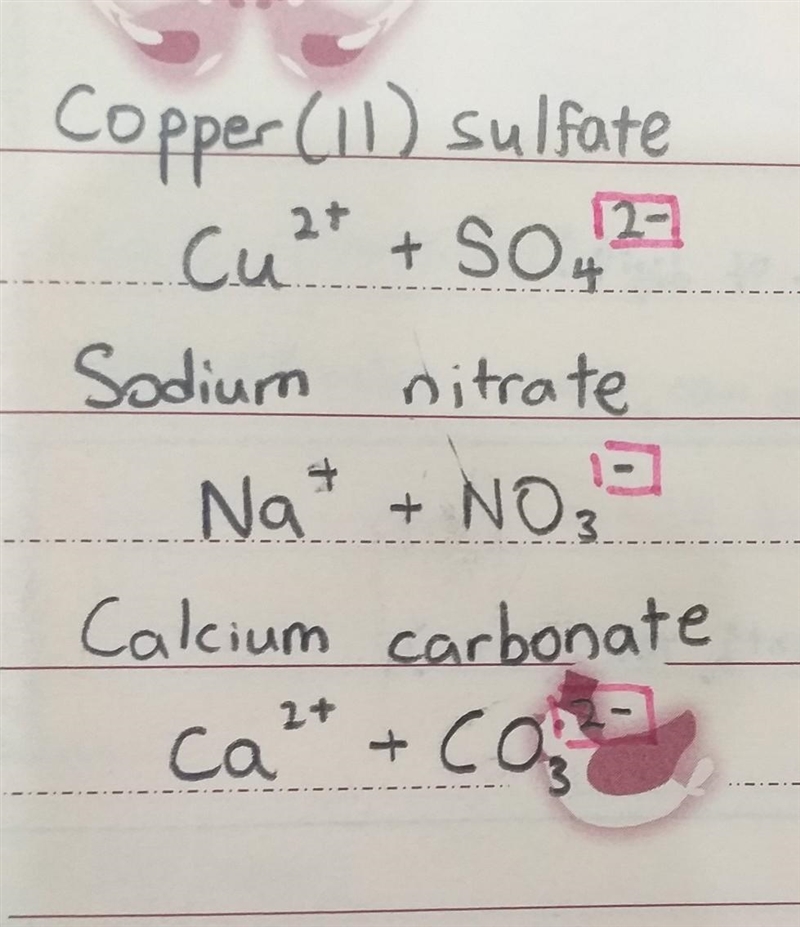 Copper (II) sulfate
Cu²⁺ + SO₄²⁻
Sodium nitrate
Na⁺ + NO₃⁻
Calcium carbonate
Ca²⁺ + CO₃²⁻